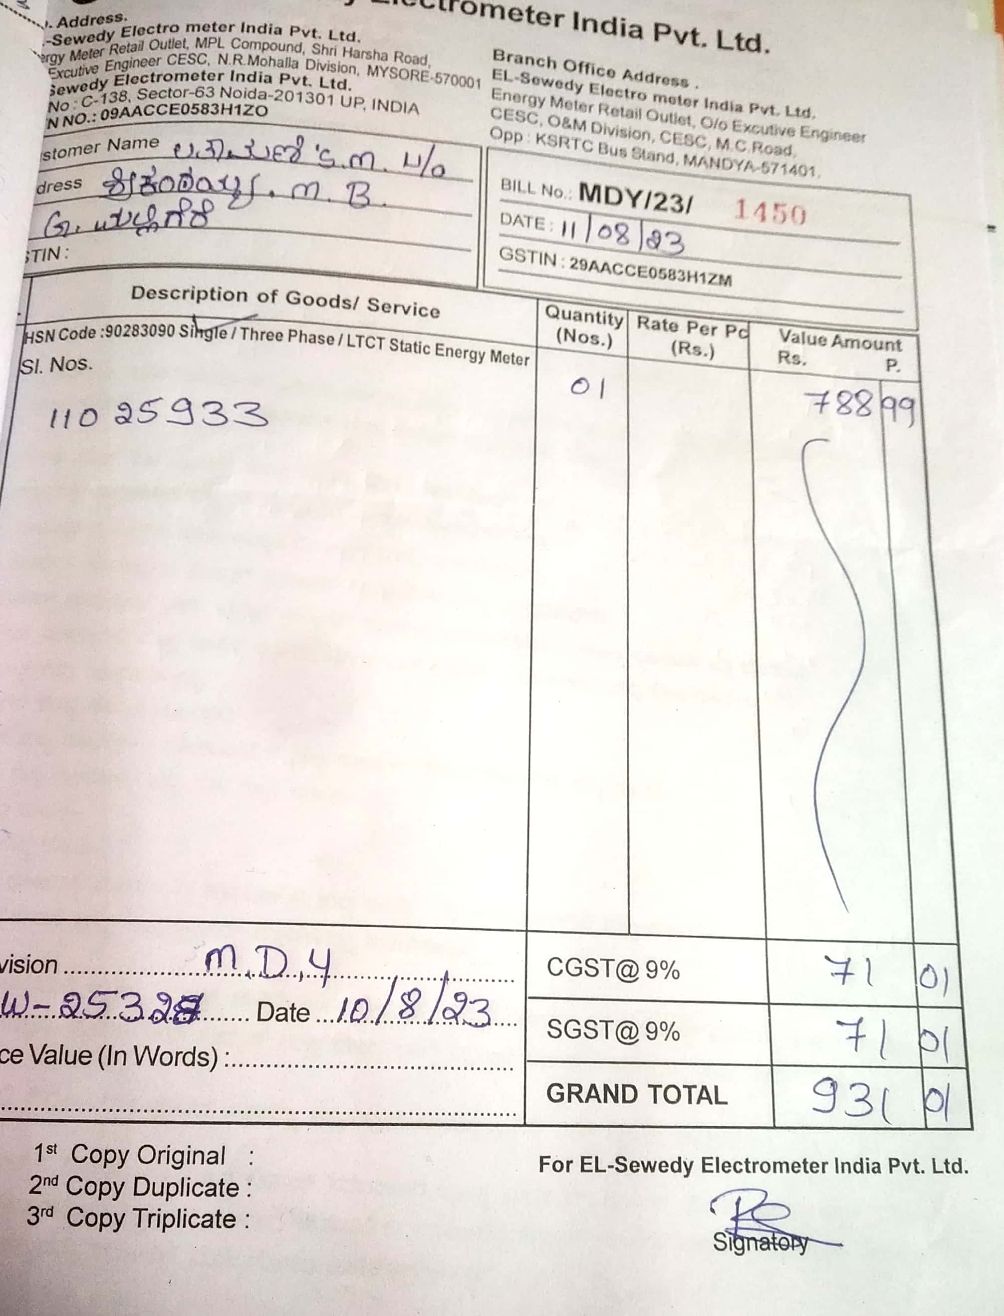 Electrometer India Pvt. Ltd.
. Address.
-Sewedy Electro meter India Pvt. Ltd.
ergy Meter Retail Outlet, MPL Compound, Shri Harsha Road,
Excutive Engineer CESC, N.R.Mohalla Division, MYSORE-570001
Sewedy Electrometer India Pvt. Ltd.
No : C-138, Sector-63 Noida-201301 UP, INDIA
N NO.: 09AACCE0583H1ZO
Branch Office Address .
EL-Sewedy Electro meter India Pvt. Ltd.
Energy Meter Retail Outlet, O/o Excutive Engineer
CESC, O&M Division, CESC, M.C.Road,
Opp : KSRTC Bus Stand, MANDYA-571401.
stomer Name S.M. W/o
dress M. B.
STIN :
BILL No.: MDY/23/ 1450
DATE : 11/08/23
GSTIN : 29AACCE0583H1ZM
Description of Goods/ Service
Quantity (Nos.)
Rate Per Pc (Rs.)
Value Amount
Rs. P.
HSN Code :90283090 Single / Three Phase / LTCT Static Energy Meter
Sl. Nos.
110 25933 01 788 99
vision M.D,4
CGST@ 9% 71 01
W-25328 Date 10/8/23
SGST@ 9% 71 01
ce Value (In Words) :
GRAND TOTAL 931 01
1st Copy Original :
2nd Copy Duplicate :
3rd Copy Triplicate :
For EL-Sewedy Electrometer India Pvt. Ltd.
Signatory